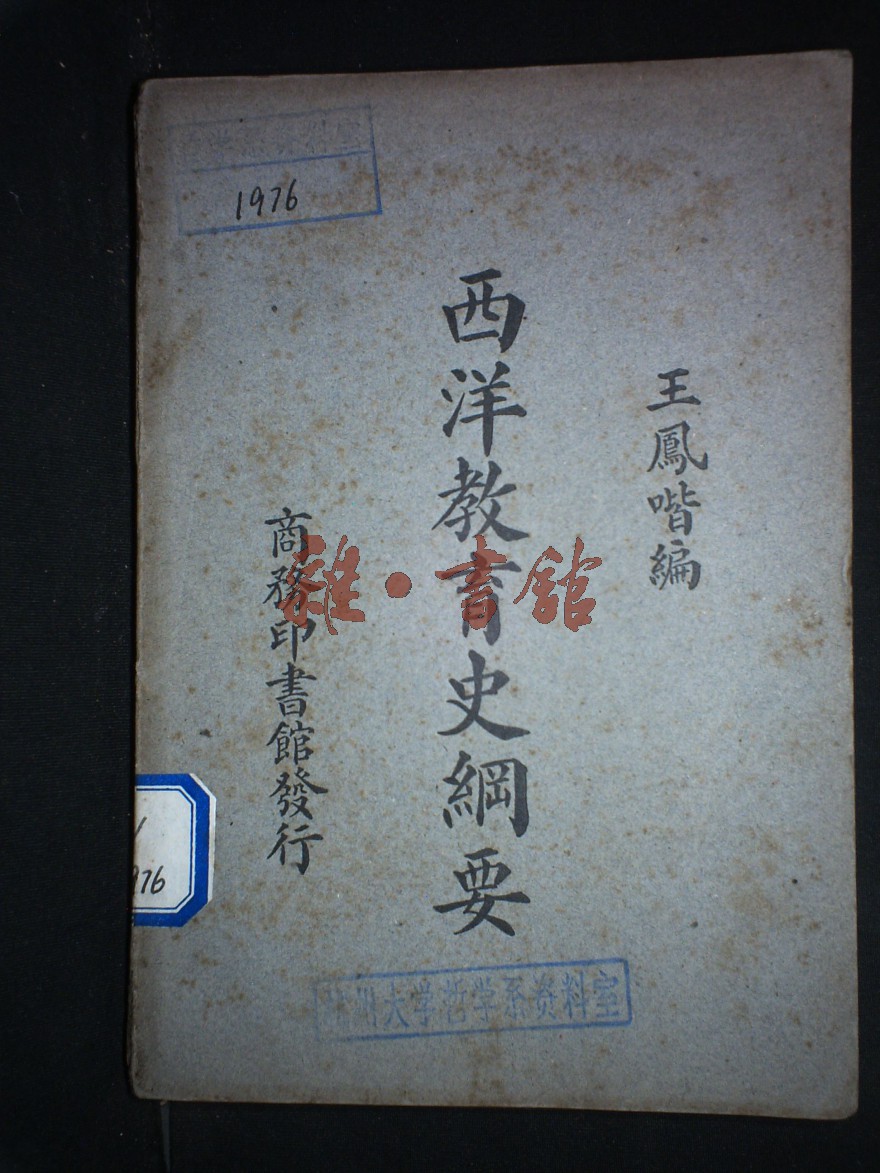 1976
王鳳喈編
西洋教育史綱要
商務印書館發行
雜·書館
976
大学哲学系资料室